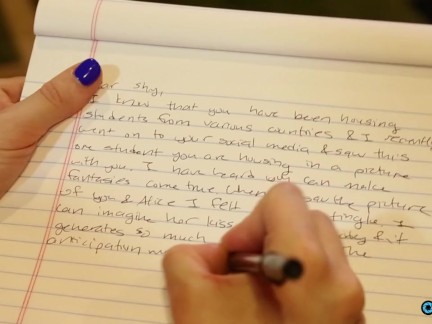 shy,
I know that you have been housing
students from various countries & I recently
went on to your social media & saw this
one student you are housing in a picture
with you. I have heard can make
fantasies come true. When saw the picture
of you & Alice I felt tingle I
can imagine her
generates so much The
anticipation